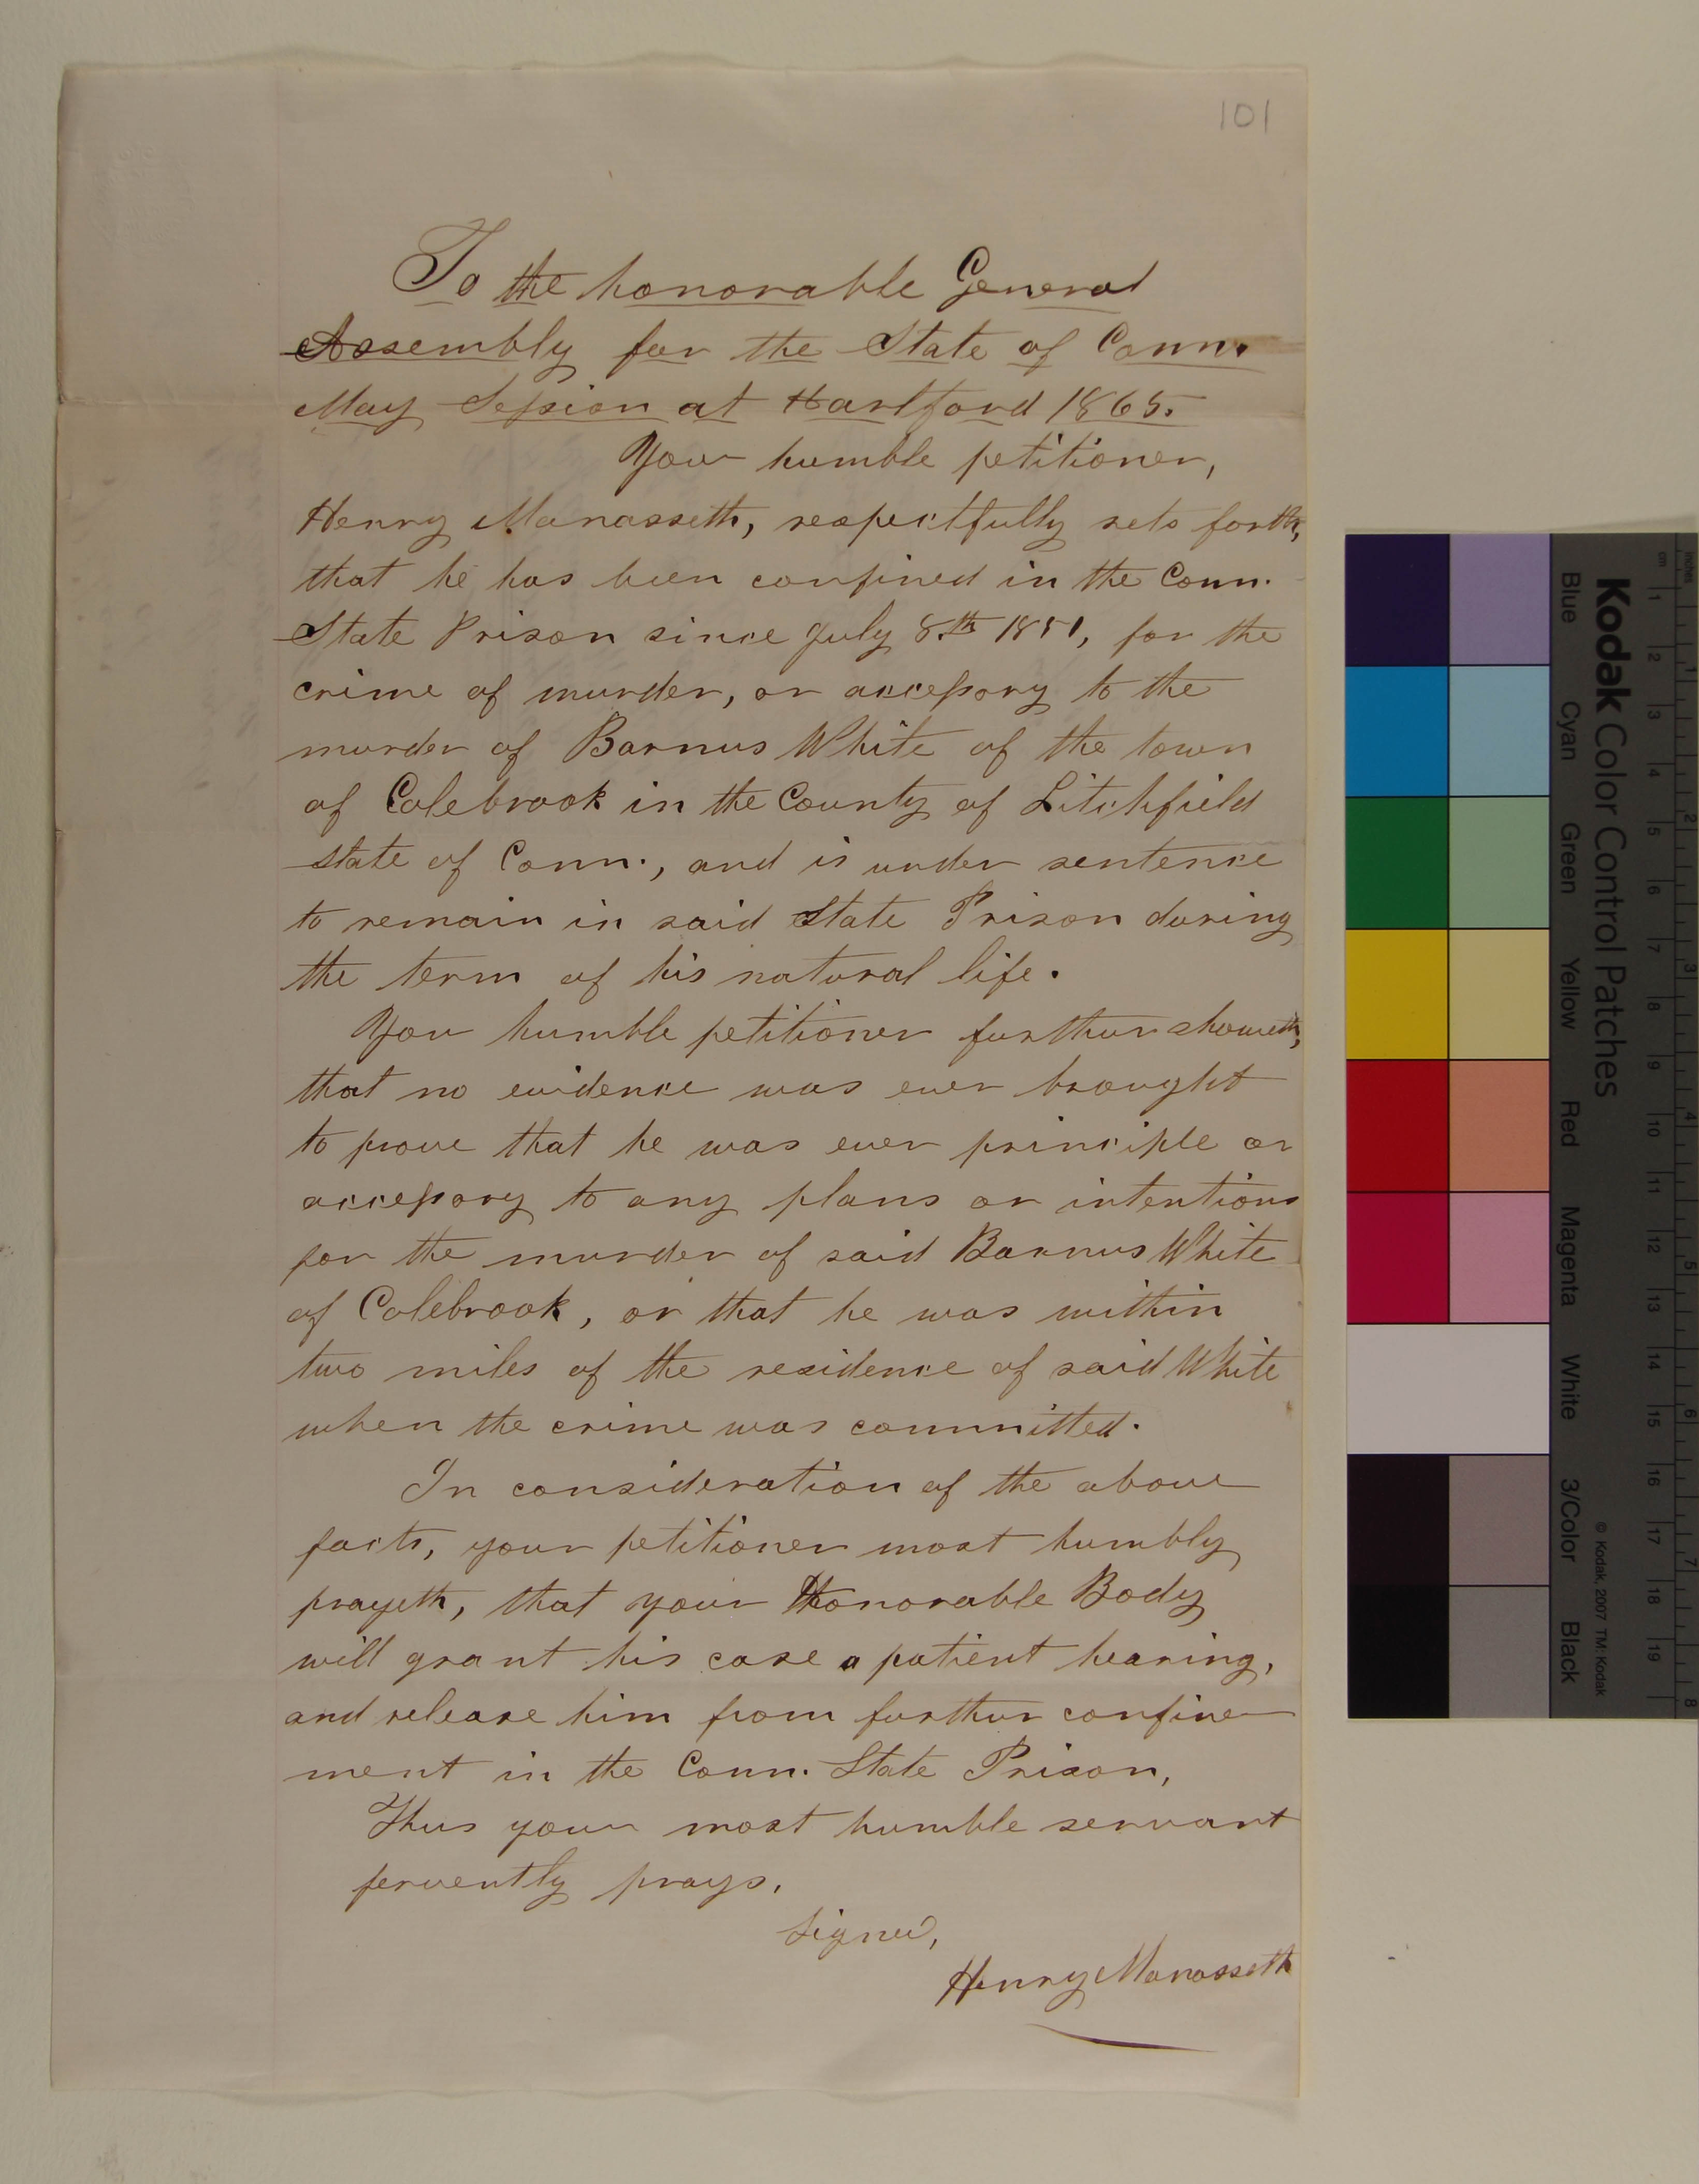 101
To the honorable General
Assembly for the State of Conn.
May Session at Hartford 1865.
Your humble petitioner,
Henry Manasseth, respectfully sets forth,
that he has been confined in the Conn.
State Prison since July 8th 1851, for the
crime of murder, or accessory to the
murder of Barnus White of the town
of Colebrook in the County of Litchfield
state of Conn., and is under sentence
to remain in said State Prison during
the term of his natural life.
Your humble petitioner further showeth,
that no evidence was ever brought
to prove that he was ever principle or
accessory to any plans or intentions
for the murder of said Barnus White
of Colebrook, or that he was within
two miles of the residence of said White
when the crime was committed.
In consideration of the above
facts, your petitioner most humbly
prayeth, that your Honorable Body
will grant his case a patient hearing,
and release him from further confine
ment in the Conn. State Prison,
Thus your most humble servant
fervently prays.
Signed,
Henry Manasseth
Kodak Color Control Patches
Blue Cyan Green Yellow Red Magenta White 3/Color Black
© Kodak, 2007 TM: Kodak
cm 1 2 3 4 5 6 7 8 9 10 11 12 13 14 15 16 17 18 19
inches 1 2 3 4 5 6 7 8